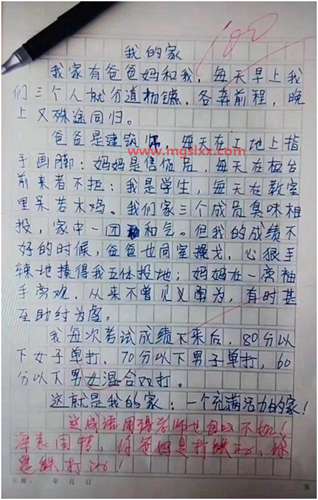 100
我的家
我家有爸爸妈和我，每天早上我
们三个人就分道扬镳，各奔前程，晚
上又殊途同归。
爸爸是建筑师，每天在工地上指
www.mgslxx.com
手画脚；妈妈是售货员，每天在柜台
前来者不拒；我是学生，每天在教室
里呆若木鸡。我们家三个成员臭味相
投，家中一团和气。但我的成绩不
好的时候，爸爸也同室操戈，心狠手
辣地揍得我五体投地；妈妈在一旁袖
手旁观，从来不曾见义勇为，有时甚
至助纣为虐。
我每次考试成绩下来后，80分以
下女子单打，70分以下男子单打，60
分以下男女混合双打。
这就是我的家：一个充满活力的家！